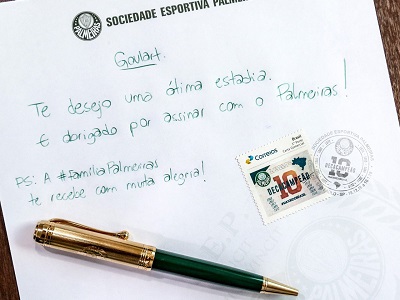 SOCIEDADE ESPORTIVA PALMEIRAS
PALMEIRAS
Goulart.
Te desejo uma ótima estadia.
E obrigado por assinar com o Palmeiras!
PS: A #FamíliaPalmeiras
te recebe com muita alegria!
Correios
Brasil
10
DECACAMPEÃO
SOCIEDADE ESPORTIVA PALMEIRAS
10
DECACAMPEÃO